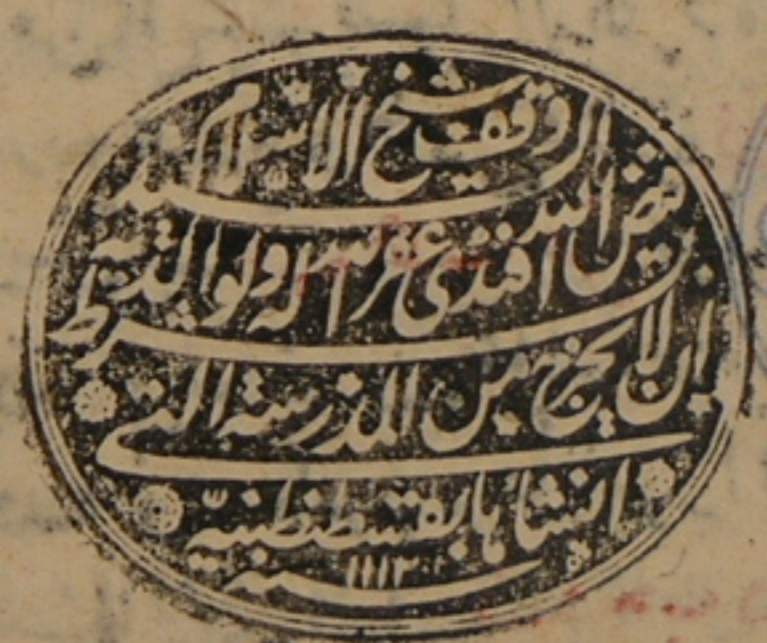 وقف شيخ الاسلام السيد
فيض الله افندى غفر الله له ولوالديه بشرط
ان لا يخرج من المدرسة التى
انشاها بقسطنطينية
سنة ١١١٣